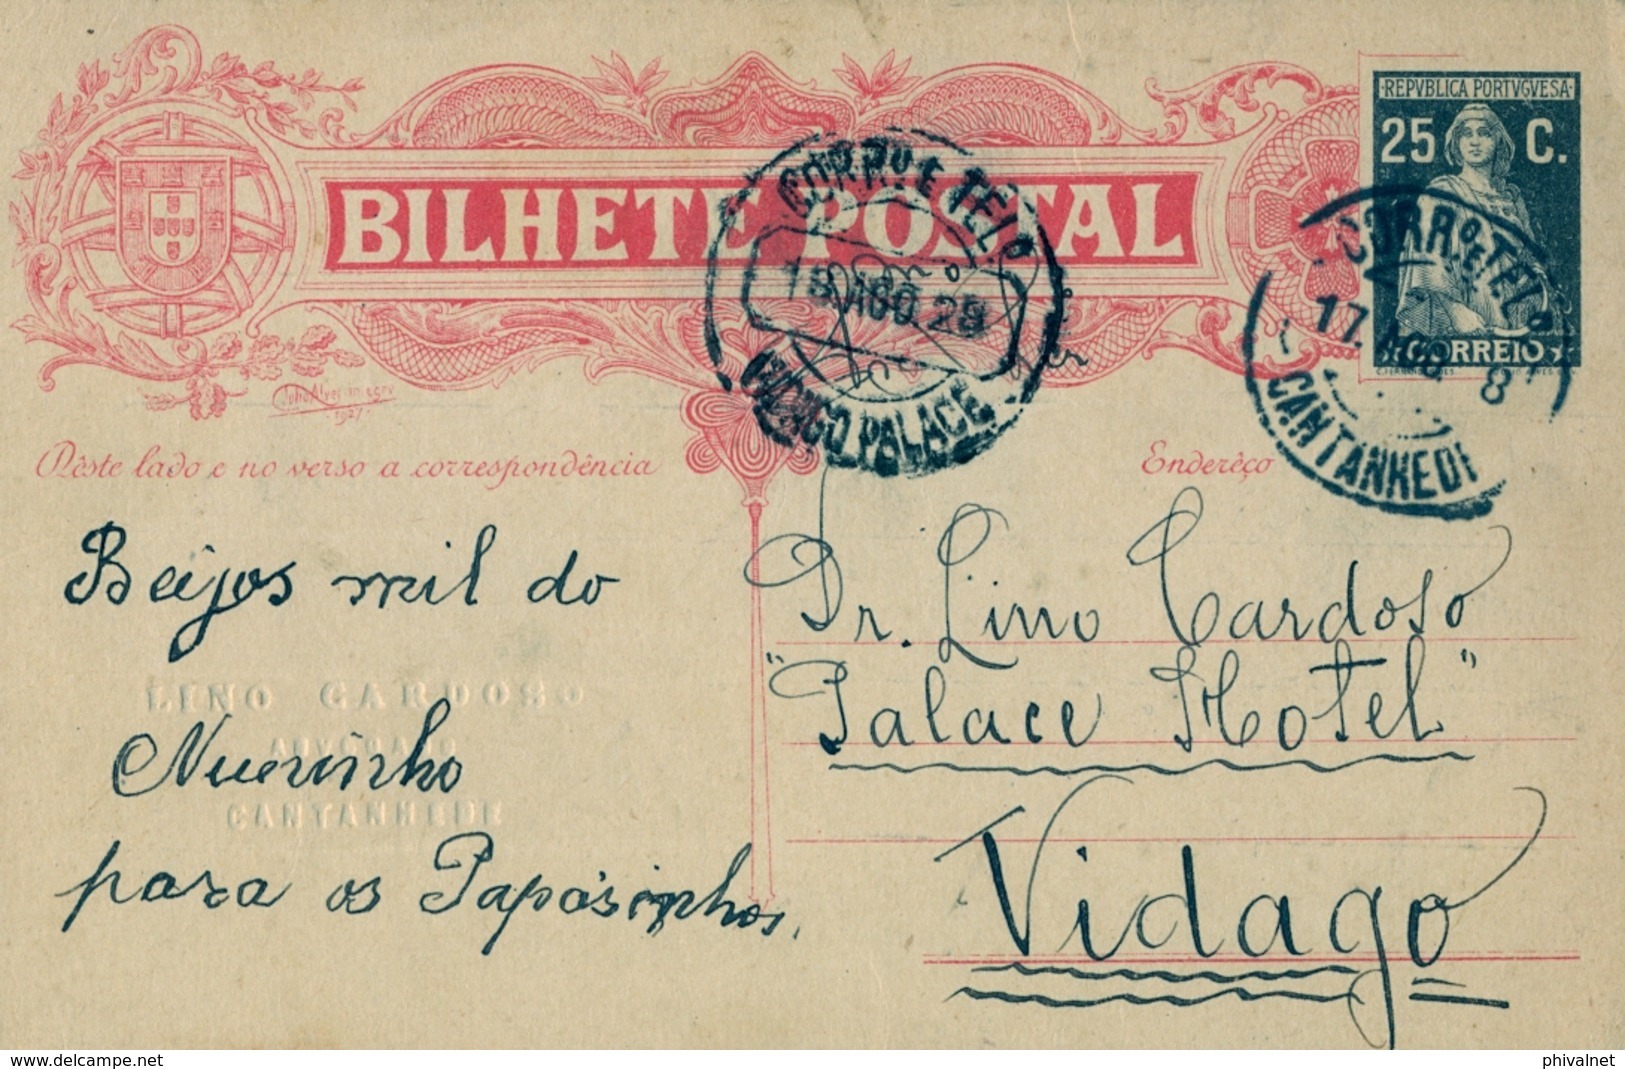 REPVBLICA PORTVGVESA
25 C.
CORREIO
BILHETE POSTAL
CORR.º E TEL.º
18. AGO. 28
VIDAGO PALACE
CORR.º E TEL.º
17. AGO 8
CANTANHEDE
Dêste lado e no verso a correspondência
Enderêço
Beijos mil do
LINO CARDOSO
ADVOGADO
Nuerinho
CANTANHEDE
para os Papásinhos.
Dr. Lino Cardoso
"Palace Hotel"
Vidago
delcampe.net
phivalnet